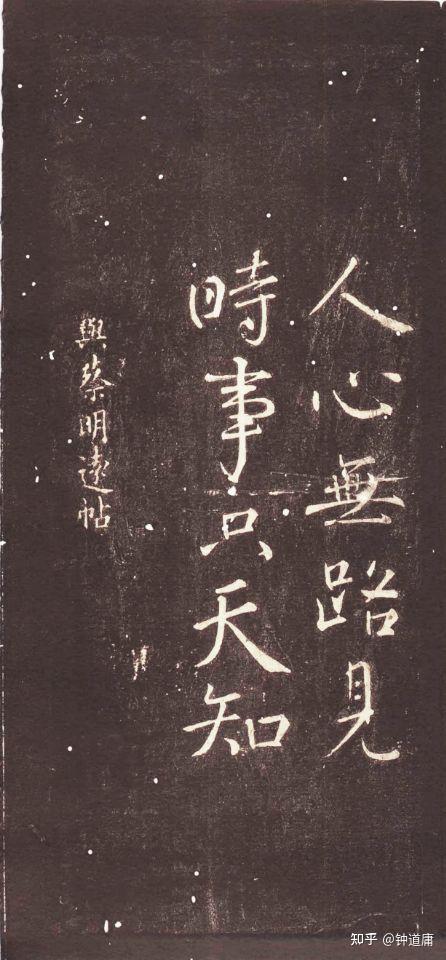 人心無路見
時事只天知
與蔡明遠帖
知乎 @钟道庸